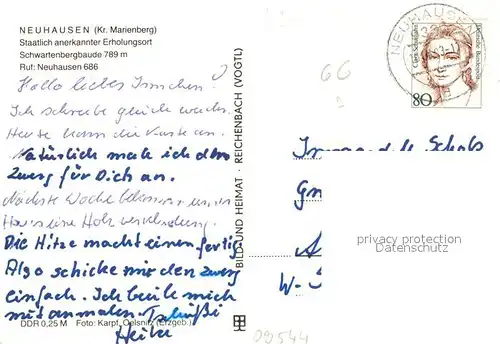 NEUHAUSEN (Kr. Marienberg)
Staatlich anerkannter Erholungsort
Schwartenbergbaude 789 m
Ruf: Neuhausen 686
Hallo liebes
Ich schreibe gleich
Heute kam die Karte an.
Natürlich male ich den
Zwerg für Dich an.
Nächste Woche bekommen wir in
Haus eine Holzverschalung.
Die Hitze macht einen fertig
Also schicke mir den Zwerg
einfach. Ich beeile mich
mit anmalen. Tschüßi
Heike
DDR 0,25 M Foto: Karpf, Oelsnitz (Erzgeb.)
BILD UND HEIMAT · REICHENBACH (VOGTL)
66
NEUHAUSEN
Deutsche Bundespost
80
W-
privacy protection
Datenschutz
09544